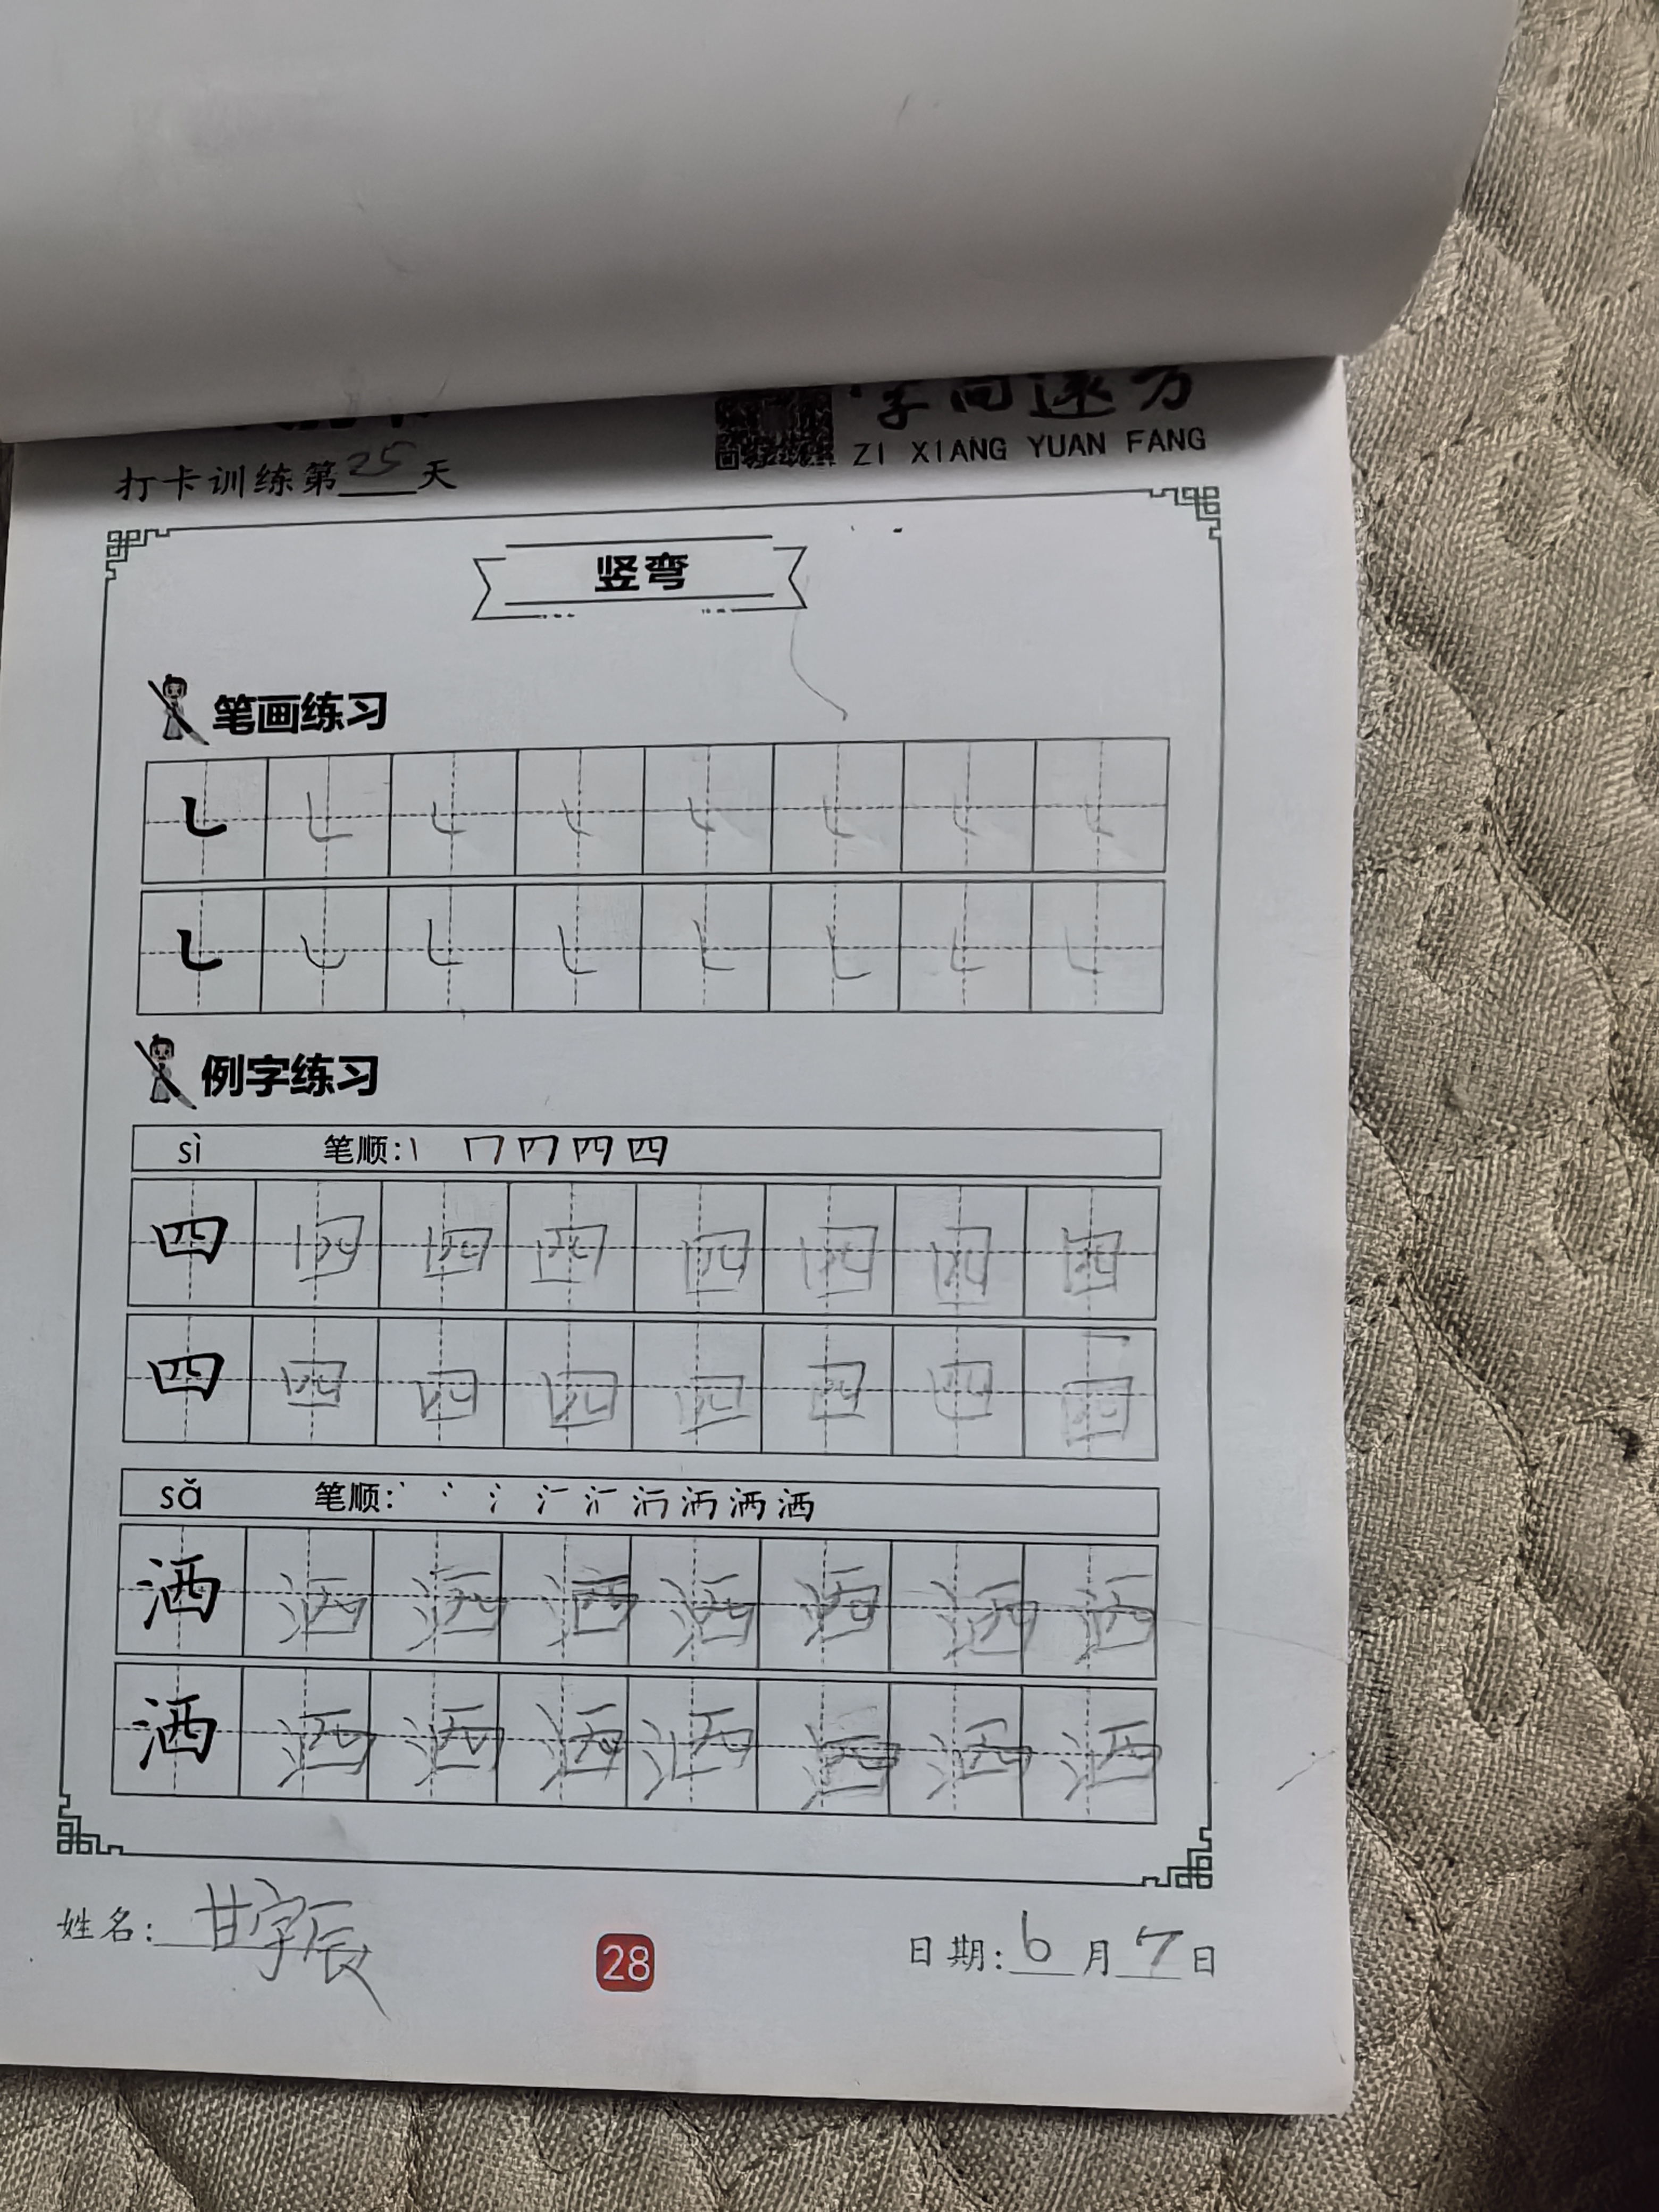 字向远方
ZI XIANG YUAN FANG
打卡训练第25天
竖弯
笔画练习
㇄ ㇄ ㇄ ㇄ ㇄ ㇄ ㇄ ㇄
㇄ ㇄ ㇄ ㇄ ㇄ ㇄ ㇄ ㇄
例字练习
sì 笔顺:丨 冂 四
四 四 四 四 四 四 四 四
四 四 四 四 四 四 四 四
sǎ 笔顺:丶 氵 洒
洒 洒 洒 洒 洒 洒 洒 洒
洒 洒 洒 洒 洒 洒 洒 洒
姓名:甘宇辰
28
日期:6月7日